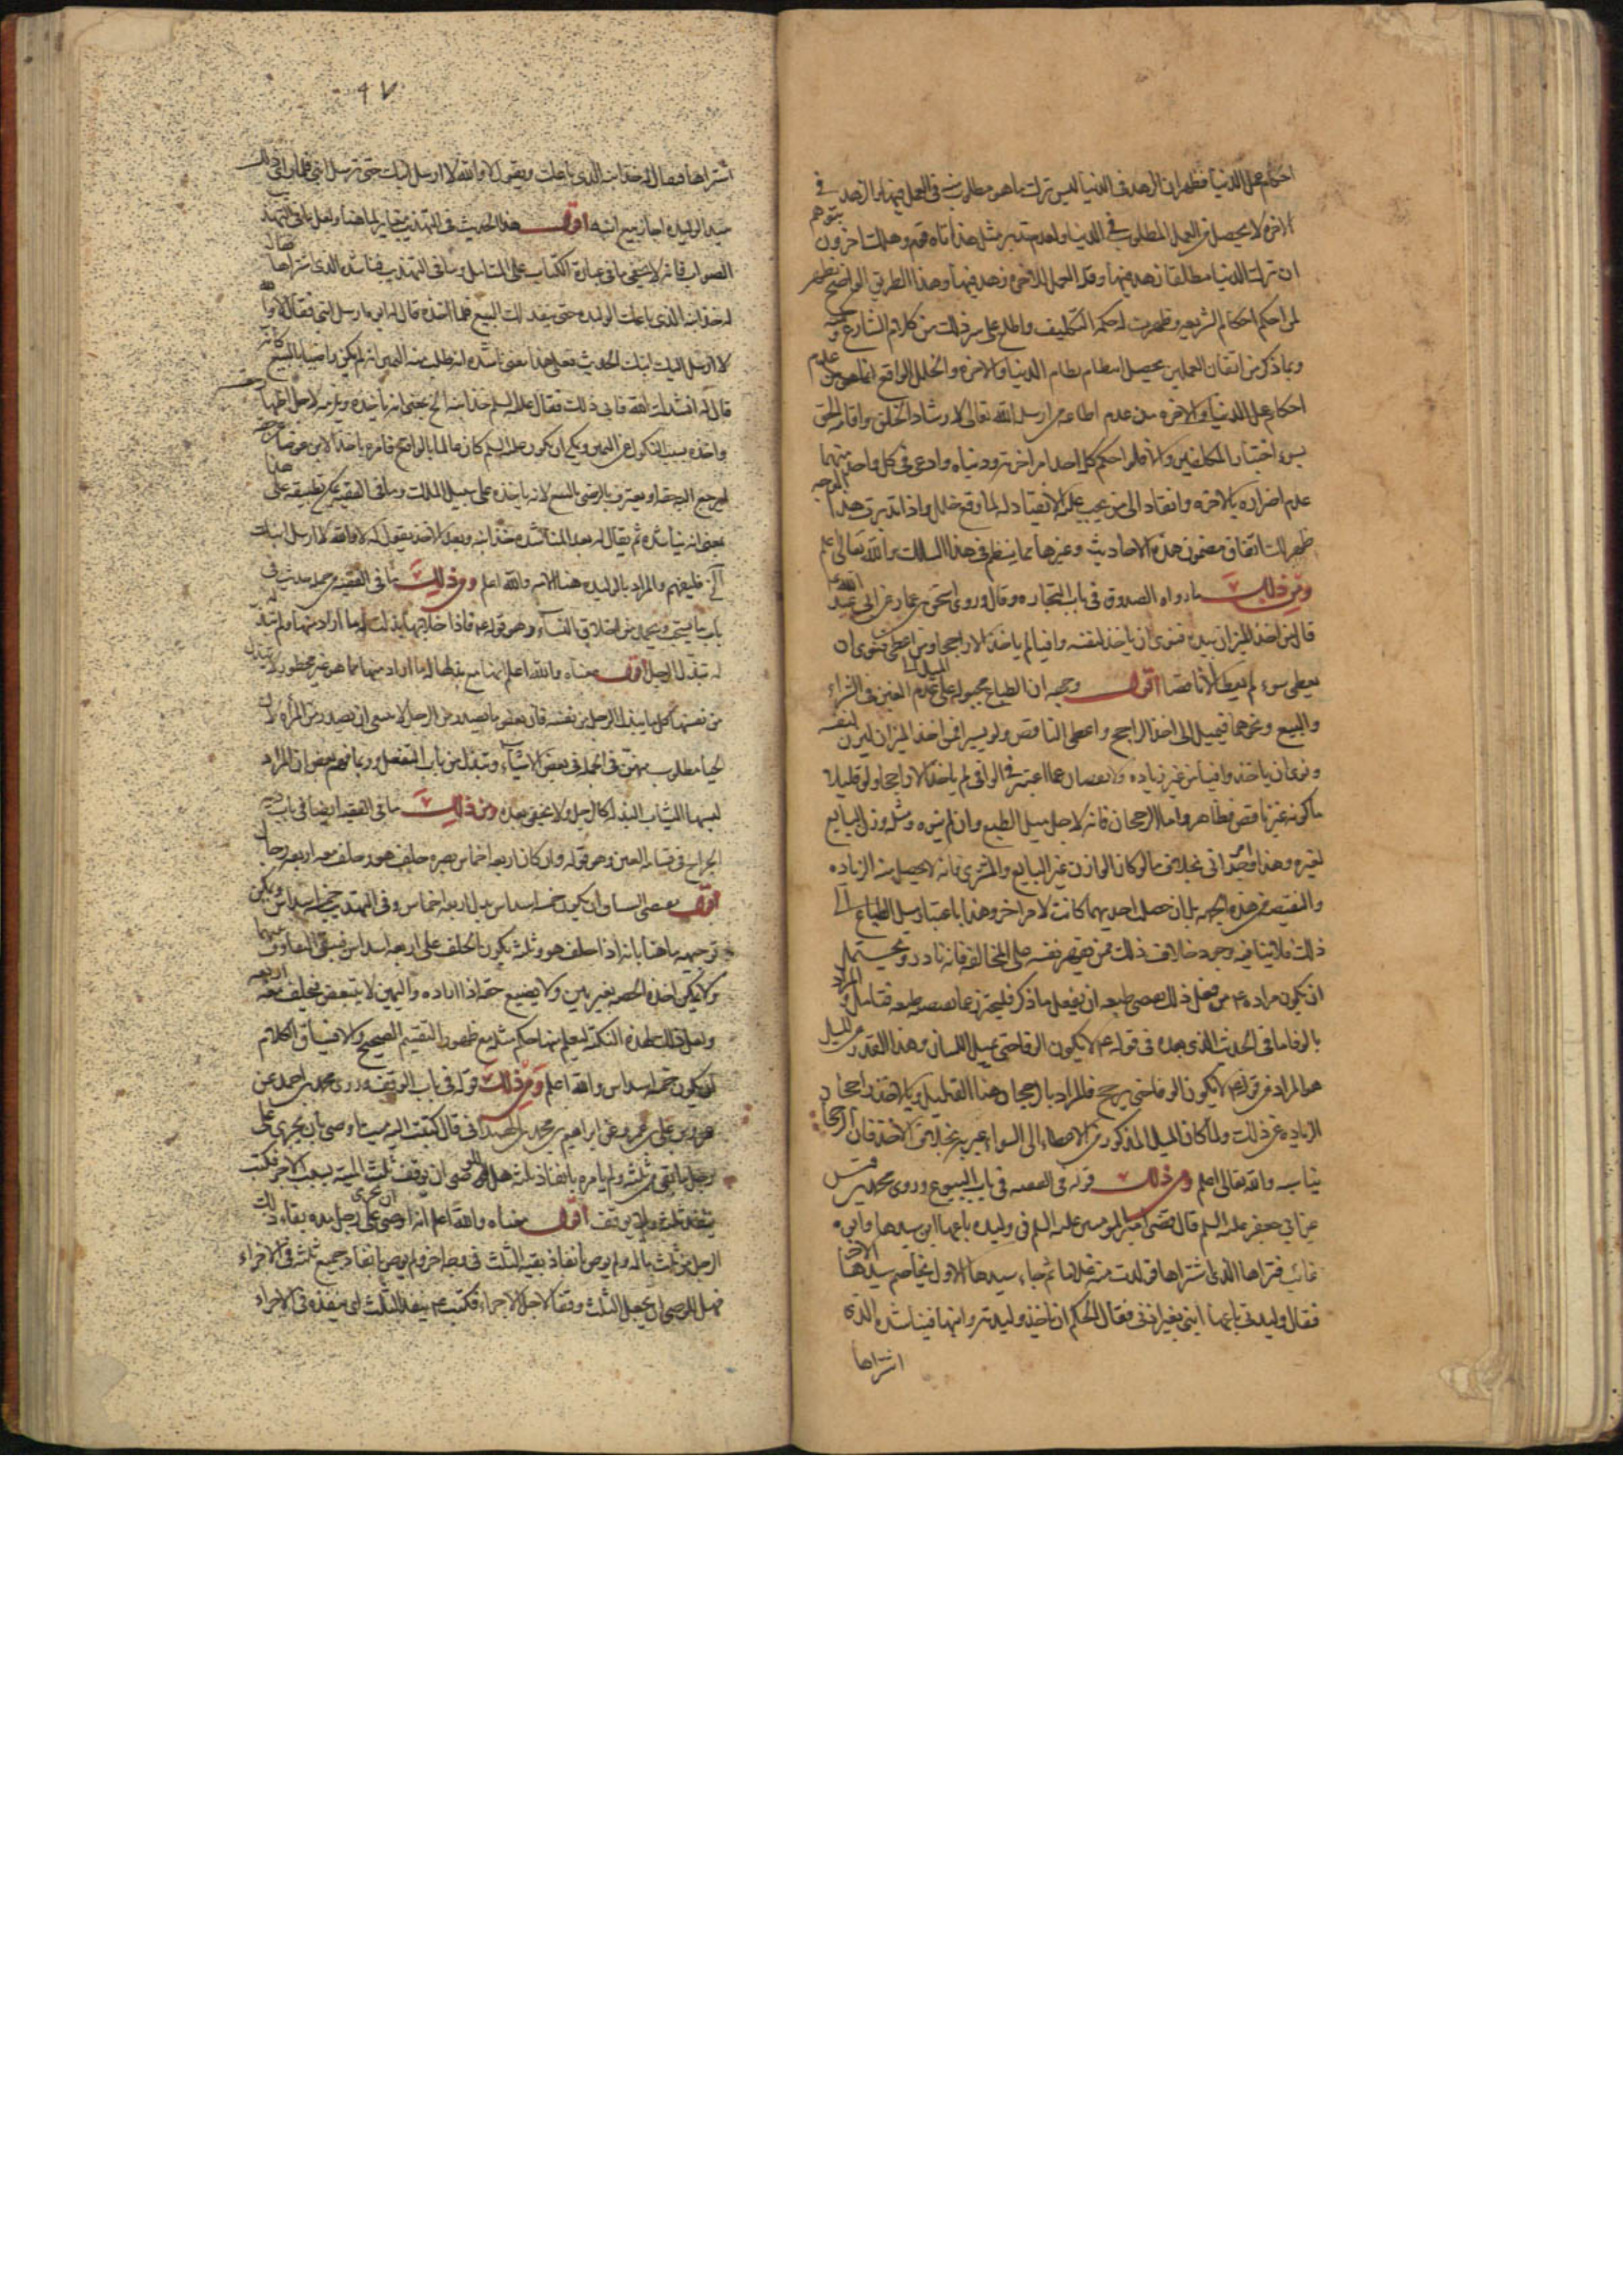 احكام عمل الدنيا فظهر ان الزهد في الدنيا ليس ترك ما هو مطلوب في العمل فيها بل الزهد في
الاخرة لا يحصل من العمل المطلوب في الدنيا ولعدم تدبر مثل هذا تاه قوم وهلك اخرون بتوهم
ان ترك الدنيا مطلقا زهد فيها وقد العمل للاخرة زهد فيها وهذا الطريق الواضح يظهر
لمن احكم احكام الشريعة وظهرت له حكم التكليف واطلع على سر ذلك من كلام الشارع
وبما ذكر من اتقان العملين يحصل انتظام نظام الدنيا والاخرة والخلل الواقع انما هو من عدم
احكام عمل الدنيا والاخرة من عدم اطاعة من ارسل الله تعالى لارشاد الخلق واقامة الحق
بسوء اختيار المكلفين والا فلو احكم كل احد امر اخرته ودنياه وادعى في كل واحد منهما
عدم اضراره بالاخرة وانقاد الى من يجب عليه الانقياد له لما وقع خلل واذا تدبرت هذا
ظهر لك اتفاق مضمون هذه الاحاديث وغيرها مما ينتظم في هذا السلك والله تعالى اعلم
ومن ذلك ما رواه الصدوق في باب التجارة وقال وروى اسحق بن عمار عن ابي عبد الله
قال من اخذ الميزان بيده فنوى ان ياخذ لنفسه وافيا لم ياخذ الا راجحا ومن اعطى فنوى ان
يعطي سواء لم يعط الا ناقصا اقول وجهه ان الطباع مجبولة على عدم الغبن في الشراء
والبيع ونحوهما فيميل الى اخذ الراجح واعطاء الناقص ولو يسيرا فمن اخذ الميزان ليزن لنفسه
ونوى ان ياخذ وافيا من غير زيادة ولا نقصان عما اعتبر في الوافي لم ياخذ الا راجحا ولو قليلا
ما كونه غير ناقص فظاهر واما الرجحان فانه لاجل ميل الطبع وان لم ينوه ومثله وزن البايع
لغيره وهذا بخلاف ما لو كان الوازن غير البايع والمشتري فانه لا يحصل منه الزيادة
والنقيصة من هذه الجهة بل ان حصل احديهما كانت لامر اخر وهذا باعتبار ميل الطباع الى
ذلك فلا ينافيه وجود خلاف ذلك ممن يقهر نفسه على المخالفة فانه نادر ويحتمل
ان يكون مراده ع من فعل ذلك بمقتضى طبعه ان يفعل ما ذكر فليحترز عما يقتضيه طبعه فتامل والمراد
بالوفا ما في الحديث الذي بعده في قوله ع لا يكون الوفا حتى يميل اللسان وهذا القدر من الميل
هو المراد من قوله لا يكون الوفا حتى يرجح فالمراد بالرجحان هنا القليل
الزيادة عن ذلك ولما كان الميل المذكور من الاعطاء الى السواء عبر به بخلاف الاخذ فان الرجحان
يناسبه والله تعالى اعلم ومن ذلك قوله في الفقيه في باب البيوع وروى محمد بن قيس
عن ابي جعفر عليه السلم قال قضى امير المومنين عليه السلم في وليدة باعها ابن سيدها وابوه
غائب فتراها الذي اشتراها فولدت منه غلاما ثم جاء سيدها الاول يخاصم سيدها الاخر
فقال وليدتي باعها ابني بغير اذني فقال الحكم ان ياخذ وليدته وابنها فيناشده الذي
اشتراها
٩٧
اشتراها فقال له خذ ابنه الذي باعك ويقول لا والله لا ارسل ابنك حتى ترسل ابني فلما راى ذلك
سيد الوليدة اجاز بيع ابنه اقول هذا الحديث في التهذيب مغاير لما هنا ولعل ما في التهذيب
الصواب فانه لا يخفى ما في عبارة الكتاب على المتامل وما في التهذيب فناشده الذي اشتراها فقال
له خذ ابنه الذي باعك الوليدة حتى ينفذ لك البيع فلما اخذه قال له ابوه ارسل ابني فقال لا والله
لا ارسل اليك ابنك الحديث فعلى هذا معنى ناشده انه طلب منه اليمين انه لم يكن راضيا بالبيع كانه
قال له انشدك الله فابى ذلك فقال عليه السلم خذ ابنه الخ يعني انه ياخذه ويلزمه لاجل اظهار
واخذه بسبب النكول عن اليمين ويمكن ان يكون عليه السلم كان عالما بالواقع فامره باخذ الابن عوضا
ليرجع البيعة او يعترف بالرضى بالبيع لانه ياخذه على سبيل الملك وما في الفقيه يمكن تطبيقه على هذا
بمعنى انه يناشده ثم يقال له بعد المناشدة خذ ابنه وبعد الاخذ يقول له لا والله لا ارسل ابنك
الخ فليفهم والمراد بالوليدة هنا الامة والله اعلم ومن ذلك ما في الفقيه من حديث في
باب ما يستحب ويحمد من اخلاق النساء وهو قوله ع فاذا خلا بها بذلت له ما اراد منها ولم تبذل
له تبذل الرجل اقول معناه والله اعلم انها مع بذلها له ما اراد منها مما هو غير محظور لا تبتذل
من نفسها كل ما يبذله الرجل من نفسه فان بعض ما يصدر من الرجل لا ينبغي ان يصدر من المراة لان
الحيا مطلوب منهن في الجملة في بعض الاشياء وتبذل من باب التفعل وربما فهم بعض ان المراد
لبسها الثياب البذلة كالرجل ولا يخفى بعده ومن ذلك ما في الفقيه ايضا في باب دية
الجراح في قسامة العين وهو قوله وان كان اربعة اخماس بصره حلف هو وحلف معه اربعة رجال
اقول مقتضى السياق ان يكون خمسة اسداس بدل اربعة اخماس وفي التهذيب خمسة اسداس ويمكن
توجيه ما هنا بانه اذا حلف هو وثلثة يكون الحلف على اربعة اسداس فيبقى التفاوت بينهما
ولا يمكن اخذ الحصة بغير يمين ولا يضيع حقه اذا اراده واليمين لا يتبعض فيحلف معه اربعة
ولعل ذلك لهذه النكتة ليعلم منها حكم مثله مع ظهور التقسيم الصحيح والا فسياق الكلام
ان يكون خمسة اسداس والله اعلم ومن ذلك قوله في باب الوقف وروى محمد بن احمد عن
عمرو بن علي بن عمر عن ابراهيم بن محمد الهمداني قال كتبت اليه ميت اوصى بان يجري على
رجل ما بقي من ثلثه ولم يامر بانفاذ ثلثه هل للوصي ان يوقف ثلث الميت بسبب الاجراء فكتب
ينفذ ثلثه ولا يوقف اقول معناه والله اعلم انه اوصى ان يجرى على رجل مدة بقاء ذلك
الرجل من ثلث ماله ولم يوص بانفاذ بقية الثلث في وجه اخر ولم يوص بانفاذ جميع ثلثه في الاجراء
فهل للوصي ان يجعل الثلث وقفا لاجل الاجراء فكتب ع ينفذ الثلث اى ينفذه في الاجراء